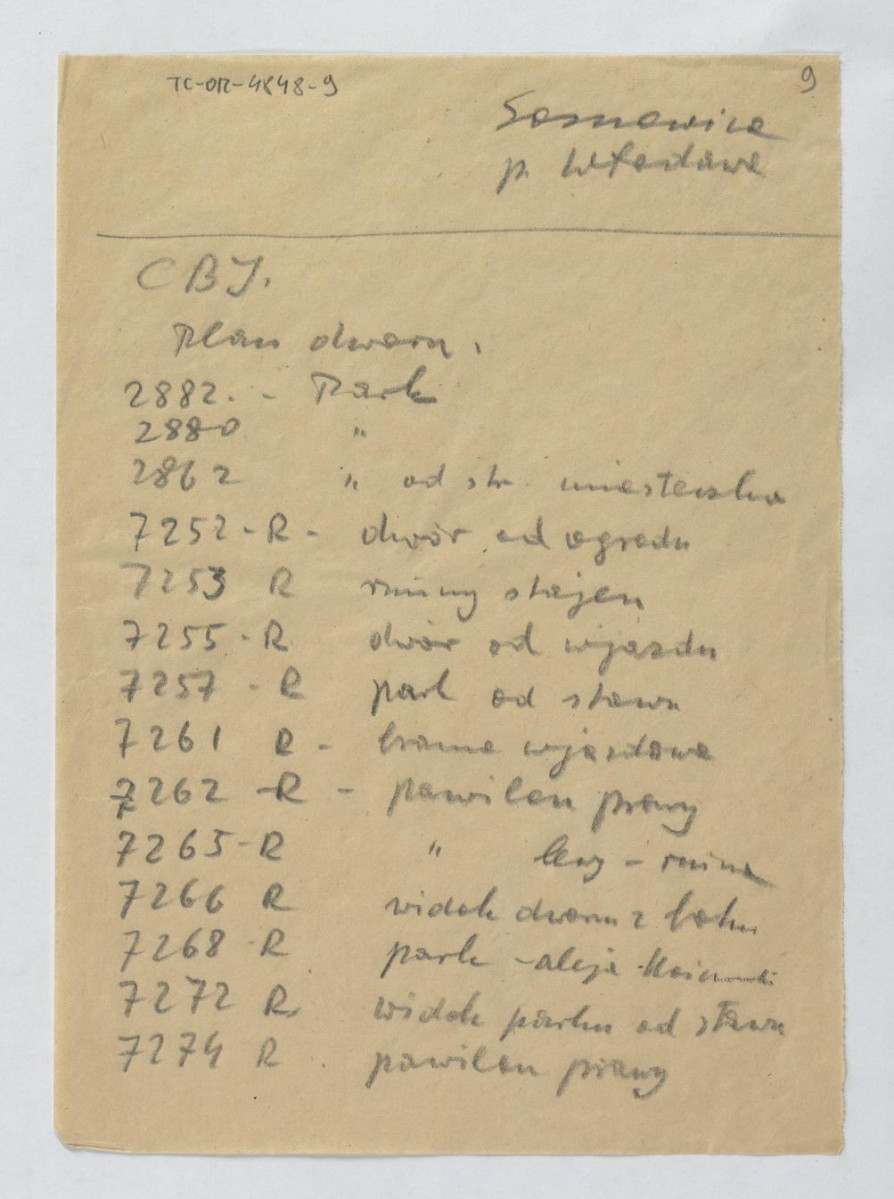 TC-OR-4848-9
9
Sosnowica
p. Włodawa
CBI.
Plan dworu.
2882. - Park
2880 "
2862 " od str. miasteczka
7252 - R - dwór od ogrodu
7253 R ruiny stajen
7255 - R dwór od wjazdu
7257 - R park od stawu
7261 R - brama wjazdowa
7262 - R - pawilon prawy
7265 - R " lewy - ruina
7266 R widok dworu z boku
7268 R park - aleja
7272 R. widok parku od stawu
7274 R . pawilon prawy